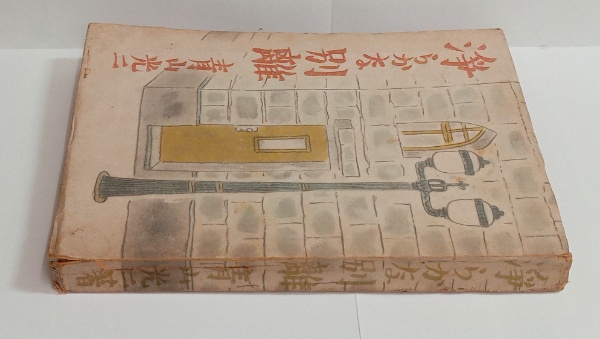 浄らかな
別離
青山光二
浄らかな別離 青山光二著